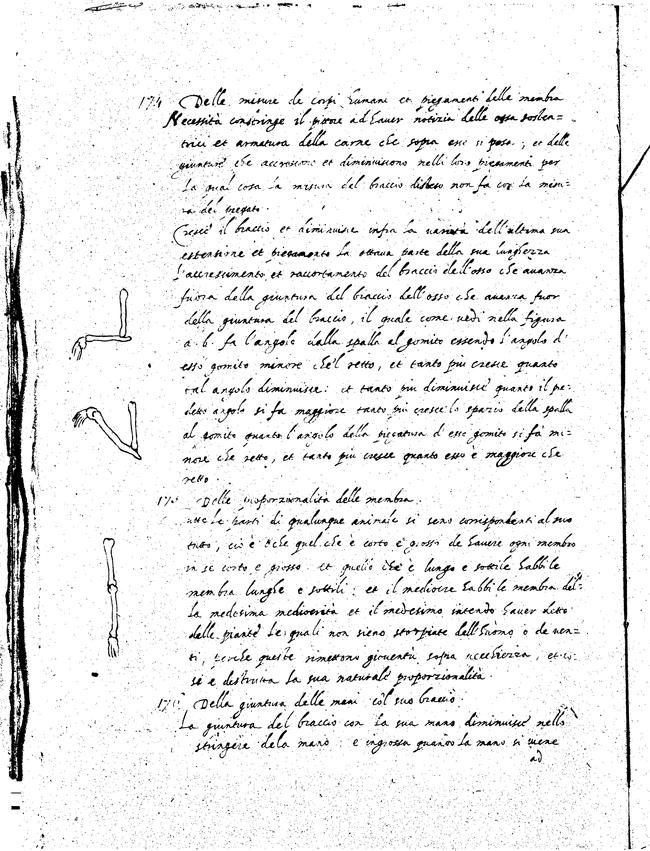 174 Delle misure de corpi humani et piegamenti delle membra
Necessità constringe il pittore ad haver notizia delle ossa sosten=
trici et armatura della carne che sopra esse si posa ; et delle
giunture che accrescono et diminuiscono nelli loro piegamenti per
la qual cosa la misura del braccio disteso non fa con la misu=
ra del piegato.
Cresce il braccio et diminuisce infra la varietà dell'ultima sua
estensione et piegamento la ottava parte della sua lunghezza
l'accrescimento et raccortamento del braccio dell'osso che avanza
fuora della giuntura del braccio dell'osso che avanza fuor
della giuntura del braccio, il quale come vedi nella figura
a. b. fa l'angolo dalla spalla al gomito essendo l'angolo d'
esso gomito minore che'l retto, et tanto più cresce quanto
tal angolo diminuisce: et tanto più diminuisce quanto il pe:
detto angolo si fa maggiore tanto più cresce lo spazio della spalla
al gomito quanto l'angolo della piegatura d'esse gomito si fa mi=
nore che retto, et tanto più cresce quanto esso è maggiore che
retto.
Delle proporzionalità delle membra.
utte le parti di qualunque animale si seno corrispondenti al suo
tutto, cio è che quel che è corto e grosso de havere ogni membro
in se corto e grosso. et quello che è lungo e sottile habbi le
membra lunghe e sottili: et il mediocre habbi le membra del=
la medesima mediocrità et il medesimo intendo haver detto
delle piante le quali non sieno storpiate dell'huomo o de ven=
ti, perche queste rimettono gioventù sopra vecchiezza, et co=
si è destrutta la sua naturale proporzionalità.
Della giuntura delle mani col suo braccio.
La giuntura del braccio con la sua mano diminuisce nello
stringere dela mano: e ingrossa quando la mano si viene
ad